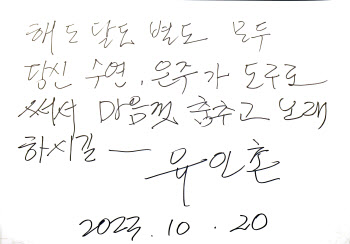 해도 달도 별도 모두
당신 수연, 은주가 도구로
써서 마음껏 춤추고 노래
하시길 —
유인촌
2023. 10. 20